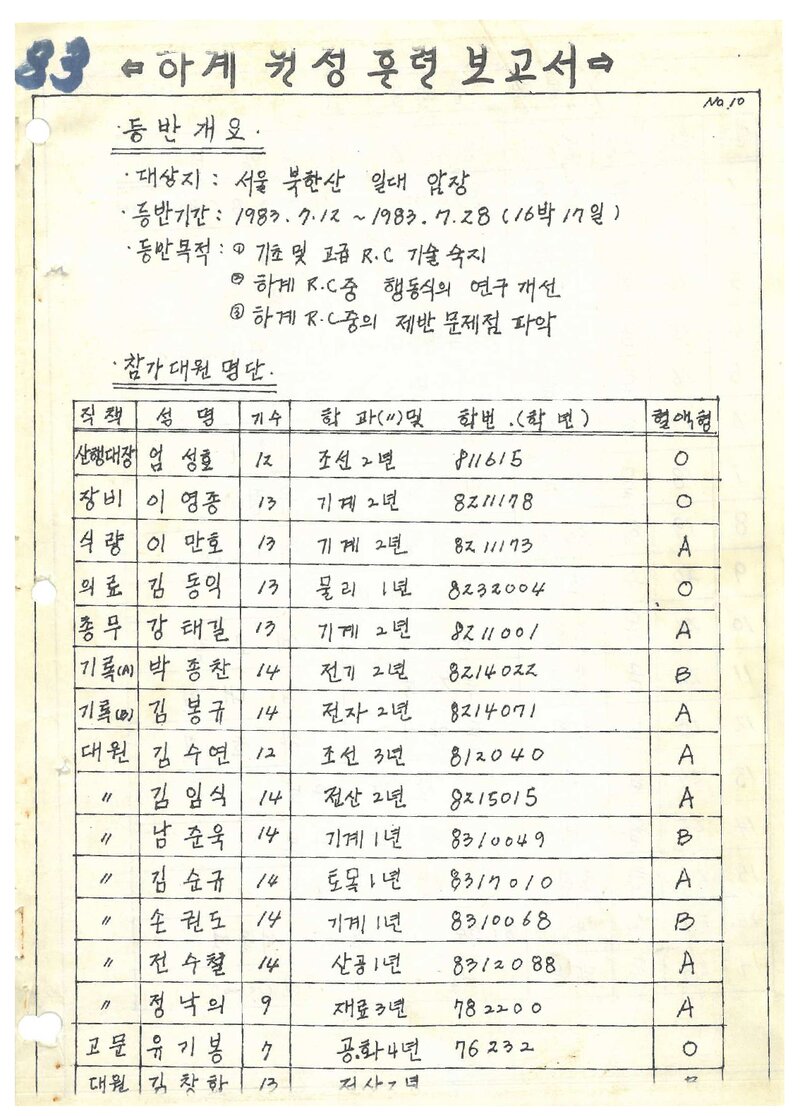 83 ⇦하계 원성 훈련 보고서⇨
No.10
·등반개요.
·대상지: 서울 북한산 일대 암장
·등반기간: 1983.7.12 ~ 1983.7.28 (16박17일)
·등반목적: ① 기초 및 고급 R.C 기술 숙지
② 하계 R.C중 행동식의 연구 개선
③ 하계 R.C중의 제반 문제점 파악
·참가대원 명단.
직책 성명 기수 학과(〃)및 학번.(학년) 혈액형
산행대장 엄성호 12 조선2년 811615 O
장비 이영종 13 기계2년 8211178 O
식량 이만호 13 기계2년 8211173 A
의료 김동익 13 물리 1년 8232004 O
총무 강태길 13 기계2년 8211001 A
기록(A) 박종찬 14 전기2년 8214022 B
기록(B) 김봉규 14 전자2년 8214071 A
대원 김수연 12 조선3년 812040 A
〃 김임식 14 전산2년 8215015 A
〃 남준욱 14 기계1년 8310049 B
〃 김순규 14 토목1년 8317010 A
〃 손권도 14 기계1년 8310068 B
〃 전수철 14 산공1년 8312088 A
〃 정낙의 9 재료3년 782200 A
고문 유기봉 7 공.화4년 76232 O
대원 김창화 13 전산2년